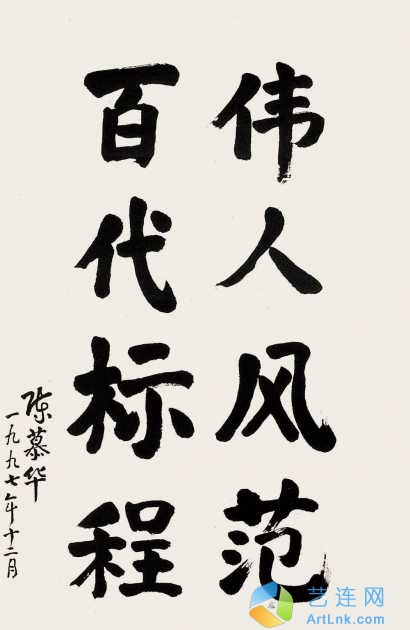 伟人风范
百代标程
陈慕华
一九九七年十二月
艺连网
ArtLnk.com